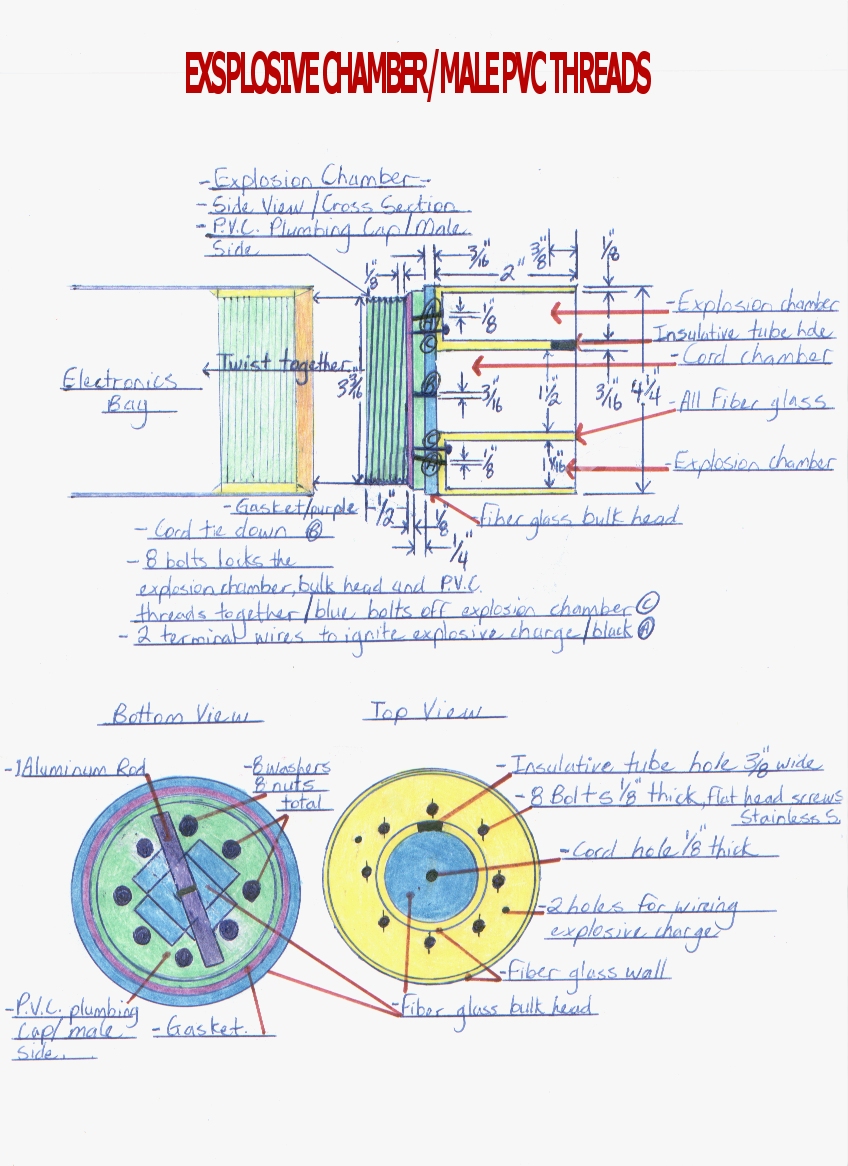 EXSPLOSIVE CHAMBER/ MALE PVC THREADS
- Explosion Chamber -
- Side View / Cross Section
- P.V.C. Plumbing Cap / Male
Side
3/16"
3/8"
1/8"
1/8"
2"
- Explosion chamber
1/8"
Insulative tube hole
- Cord chamber
Twist together
Electronics
Bay
3 3/16"
3/16"
1 1/2"
3/16"
4 1/4"
- All Fiber glass
C
B
C
1/8"
1 1/16"
- Explosion chamber
- Gasket/purple
1/2"
1/8"
Fiber glass bulk head
- Cord tie down B
1/4"
- 8 bolts locks the
explosion chamber, bulk head and P.V.C.
threads together / blue bolts off explosion chamber C
- 2 terminal wires to ignite explosive charge / black A
Bottom View
Top View
- 1 Aluminum Rod
- 8 washers
8 nuts
total
- Insulative tube hole 3/8" wide
- 8 Bolts 1/8" thick, flat head screws
Stainless S.
- Cord hole 1/8" thick
- 2 holes for wireing
explosive charge
- Fiber glass wall
- Fiber glass bulk head
- P.V.C. plumbing
Cap / male
Side.
- Gasket.